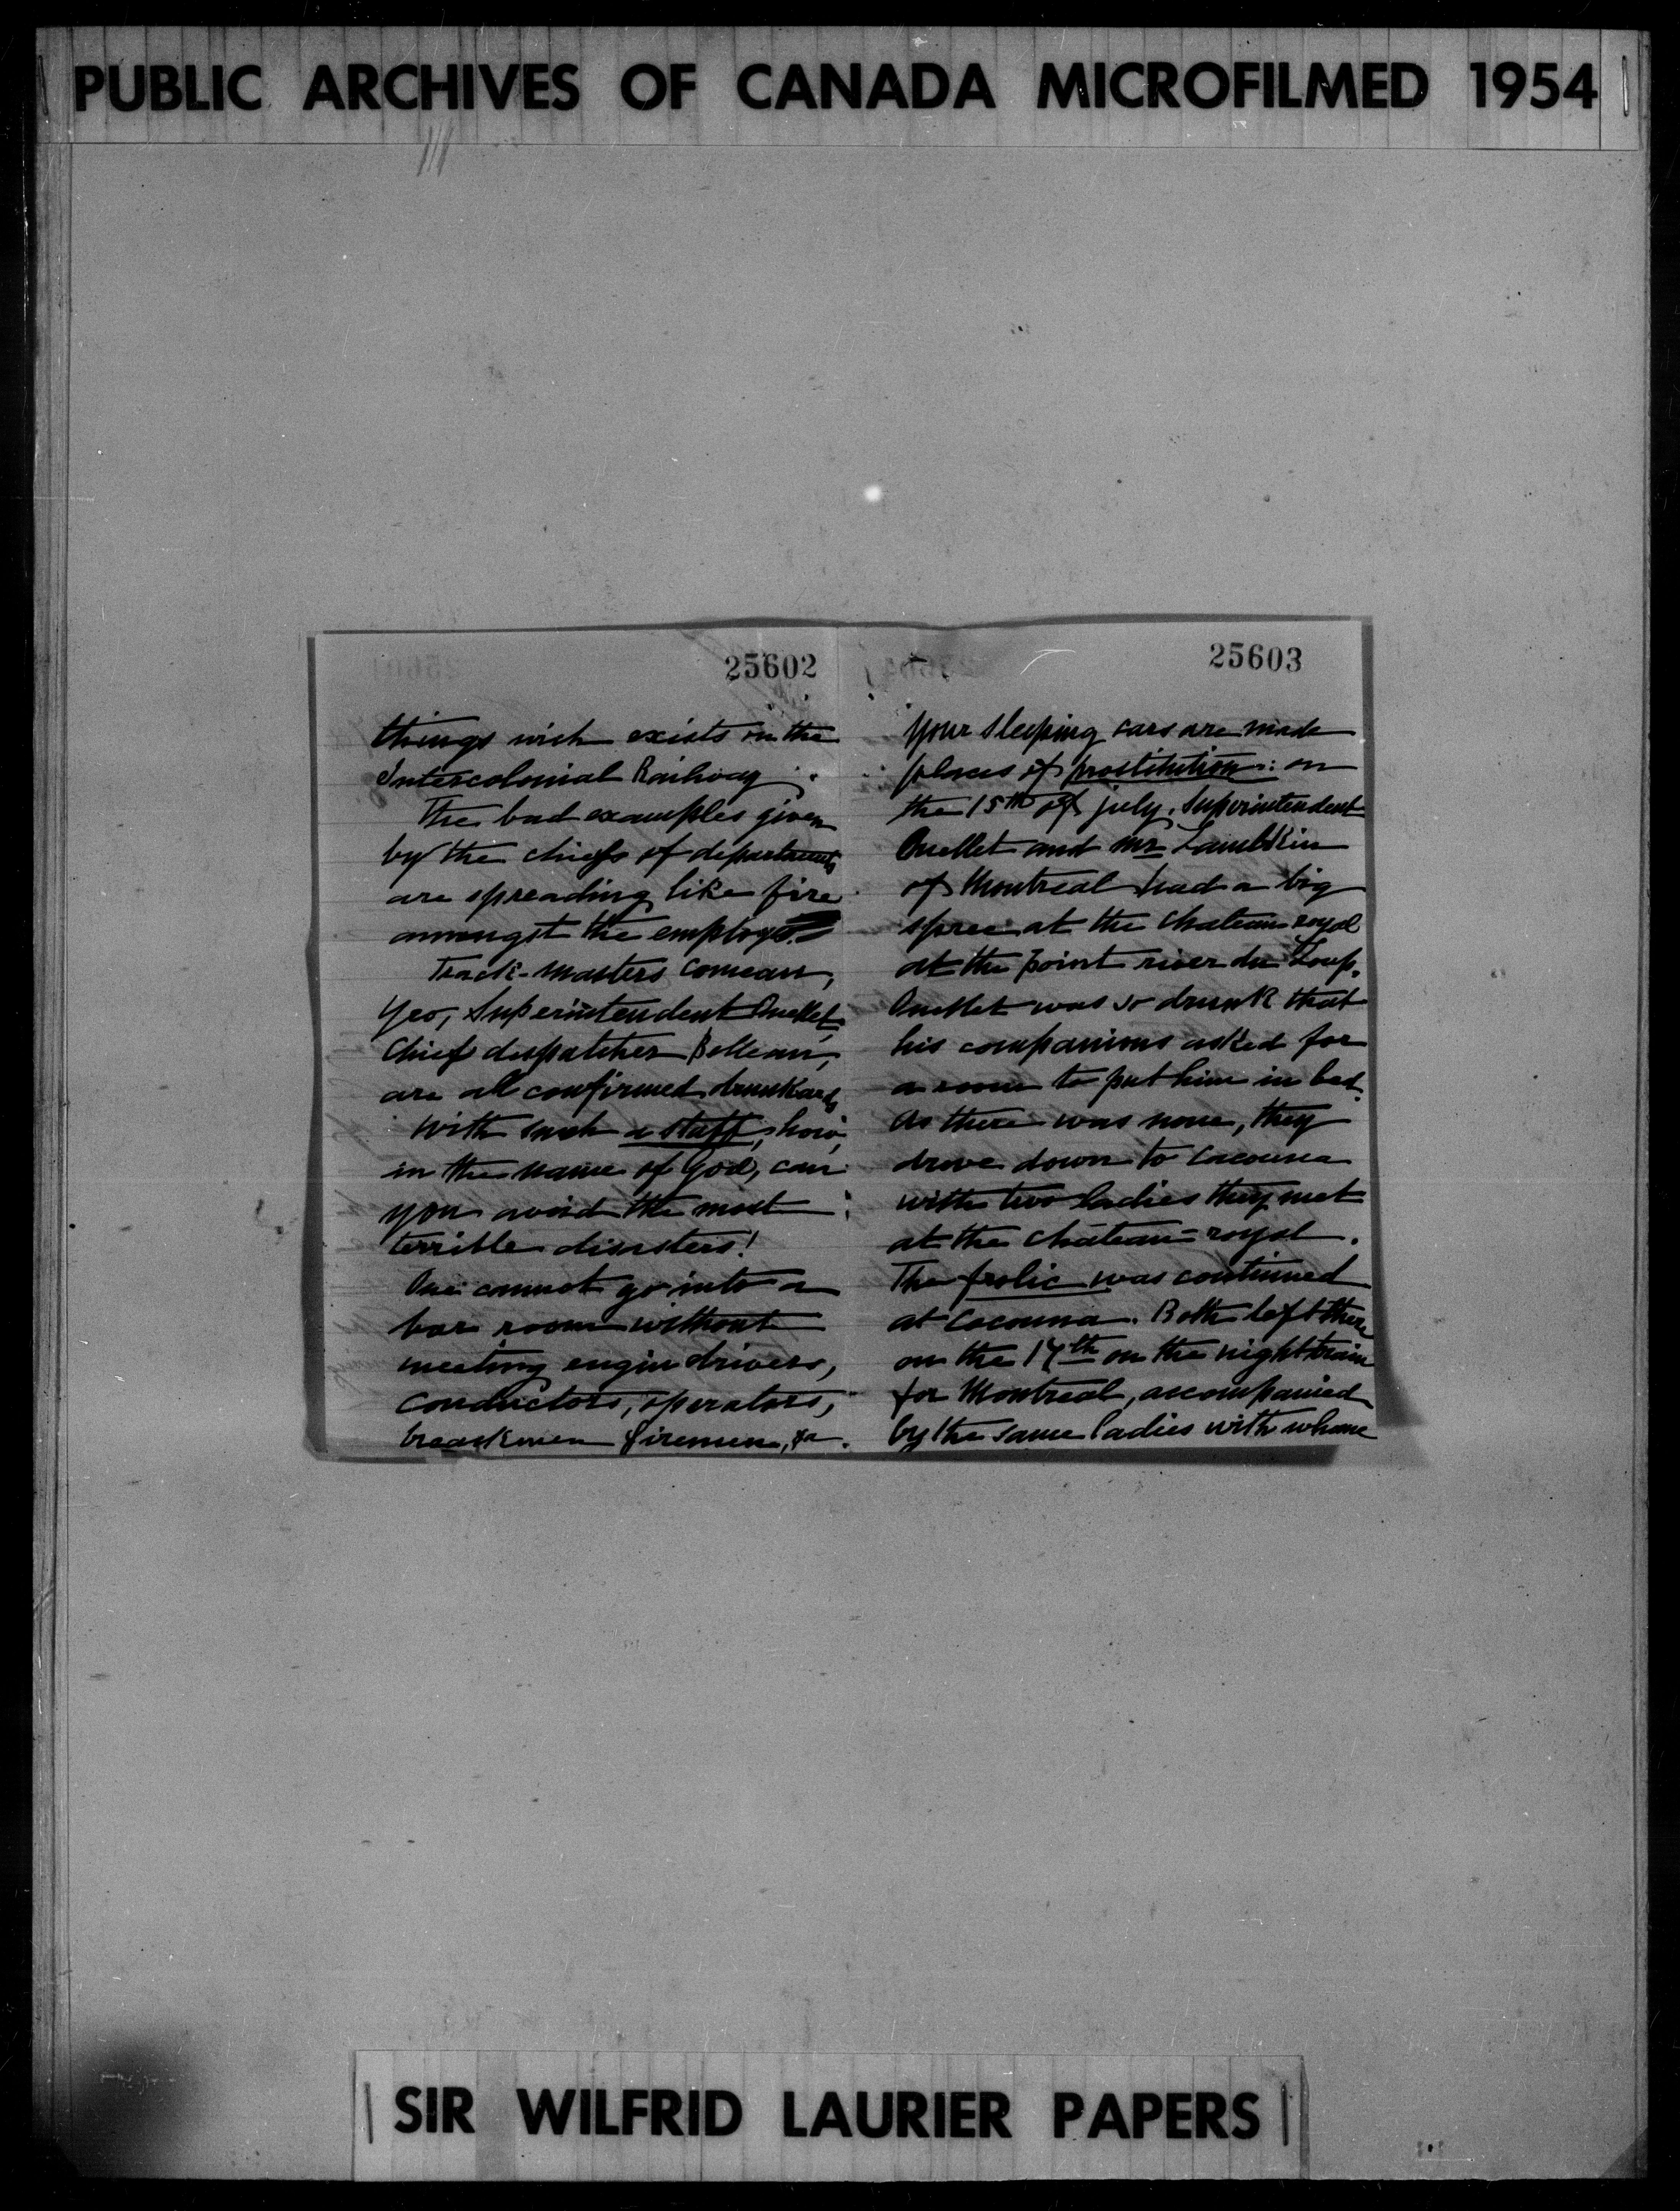 PUBLIC ARCHIVES OF CANADA MICROFILMED 1954
25602
things wich exists in the
Intercolonial Railway.
The bad examples given
by the chiefs of departments
are spreading like fire
amongst the
Track-masters Comeau,
Yeo, Superintendent Ouellet,
Chief dispatcher Belleau,
are all confirmed drunkards
With such a staff, how,
in the name of God, can
you avoid the most
terrible disasters!
One cannot go into a
bar room without
meeting engin drivers,
conductors, operators,
breackmen firemen, &a.
25603
Your sleeping cars are made
places of prostitution: on
the 15th of july, Superintendent
Ouellet and Mr Lambkin
of Montreal had a big
spree at the Chateau royal
at the point river du Loup.
Ouellet was so drunk that
his companions asked for
a room to put him in bed.
As there was none, they
drove down to Cacouna
with two ladies they met
at the chateau=royal.
The frolic was continued
at Cacouna. Both left there
on the 17th on the night train
for Montreal, accompanied
by the same ladies with whome
SIR WILFRID LAURIER PAPERS